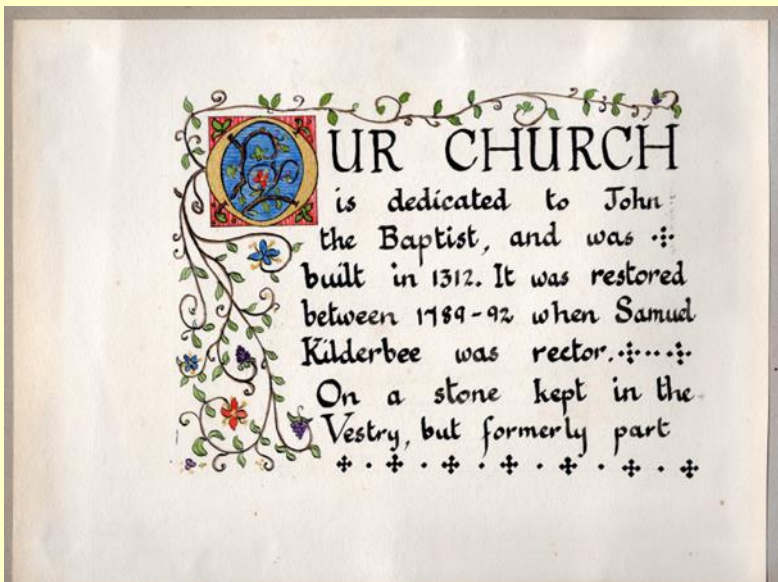 OUR CHURCH
is dedicated to John
the Baptist, and was
built in 1312. It was restored
between 1789-92 when Samuel
Kilderbee was rector.
On a stone kept in the
Vestry, but formerly part